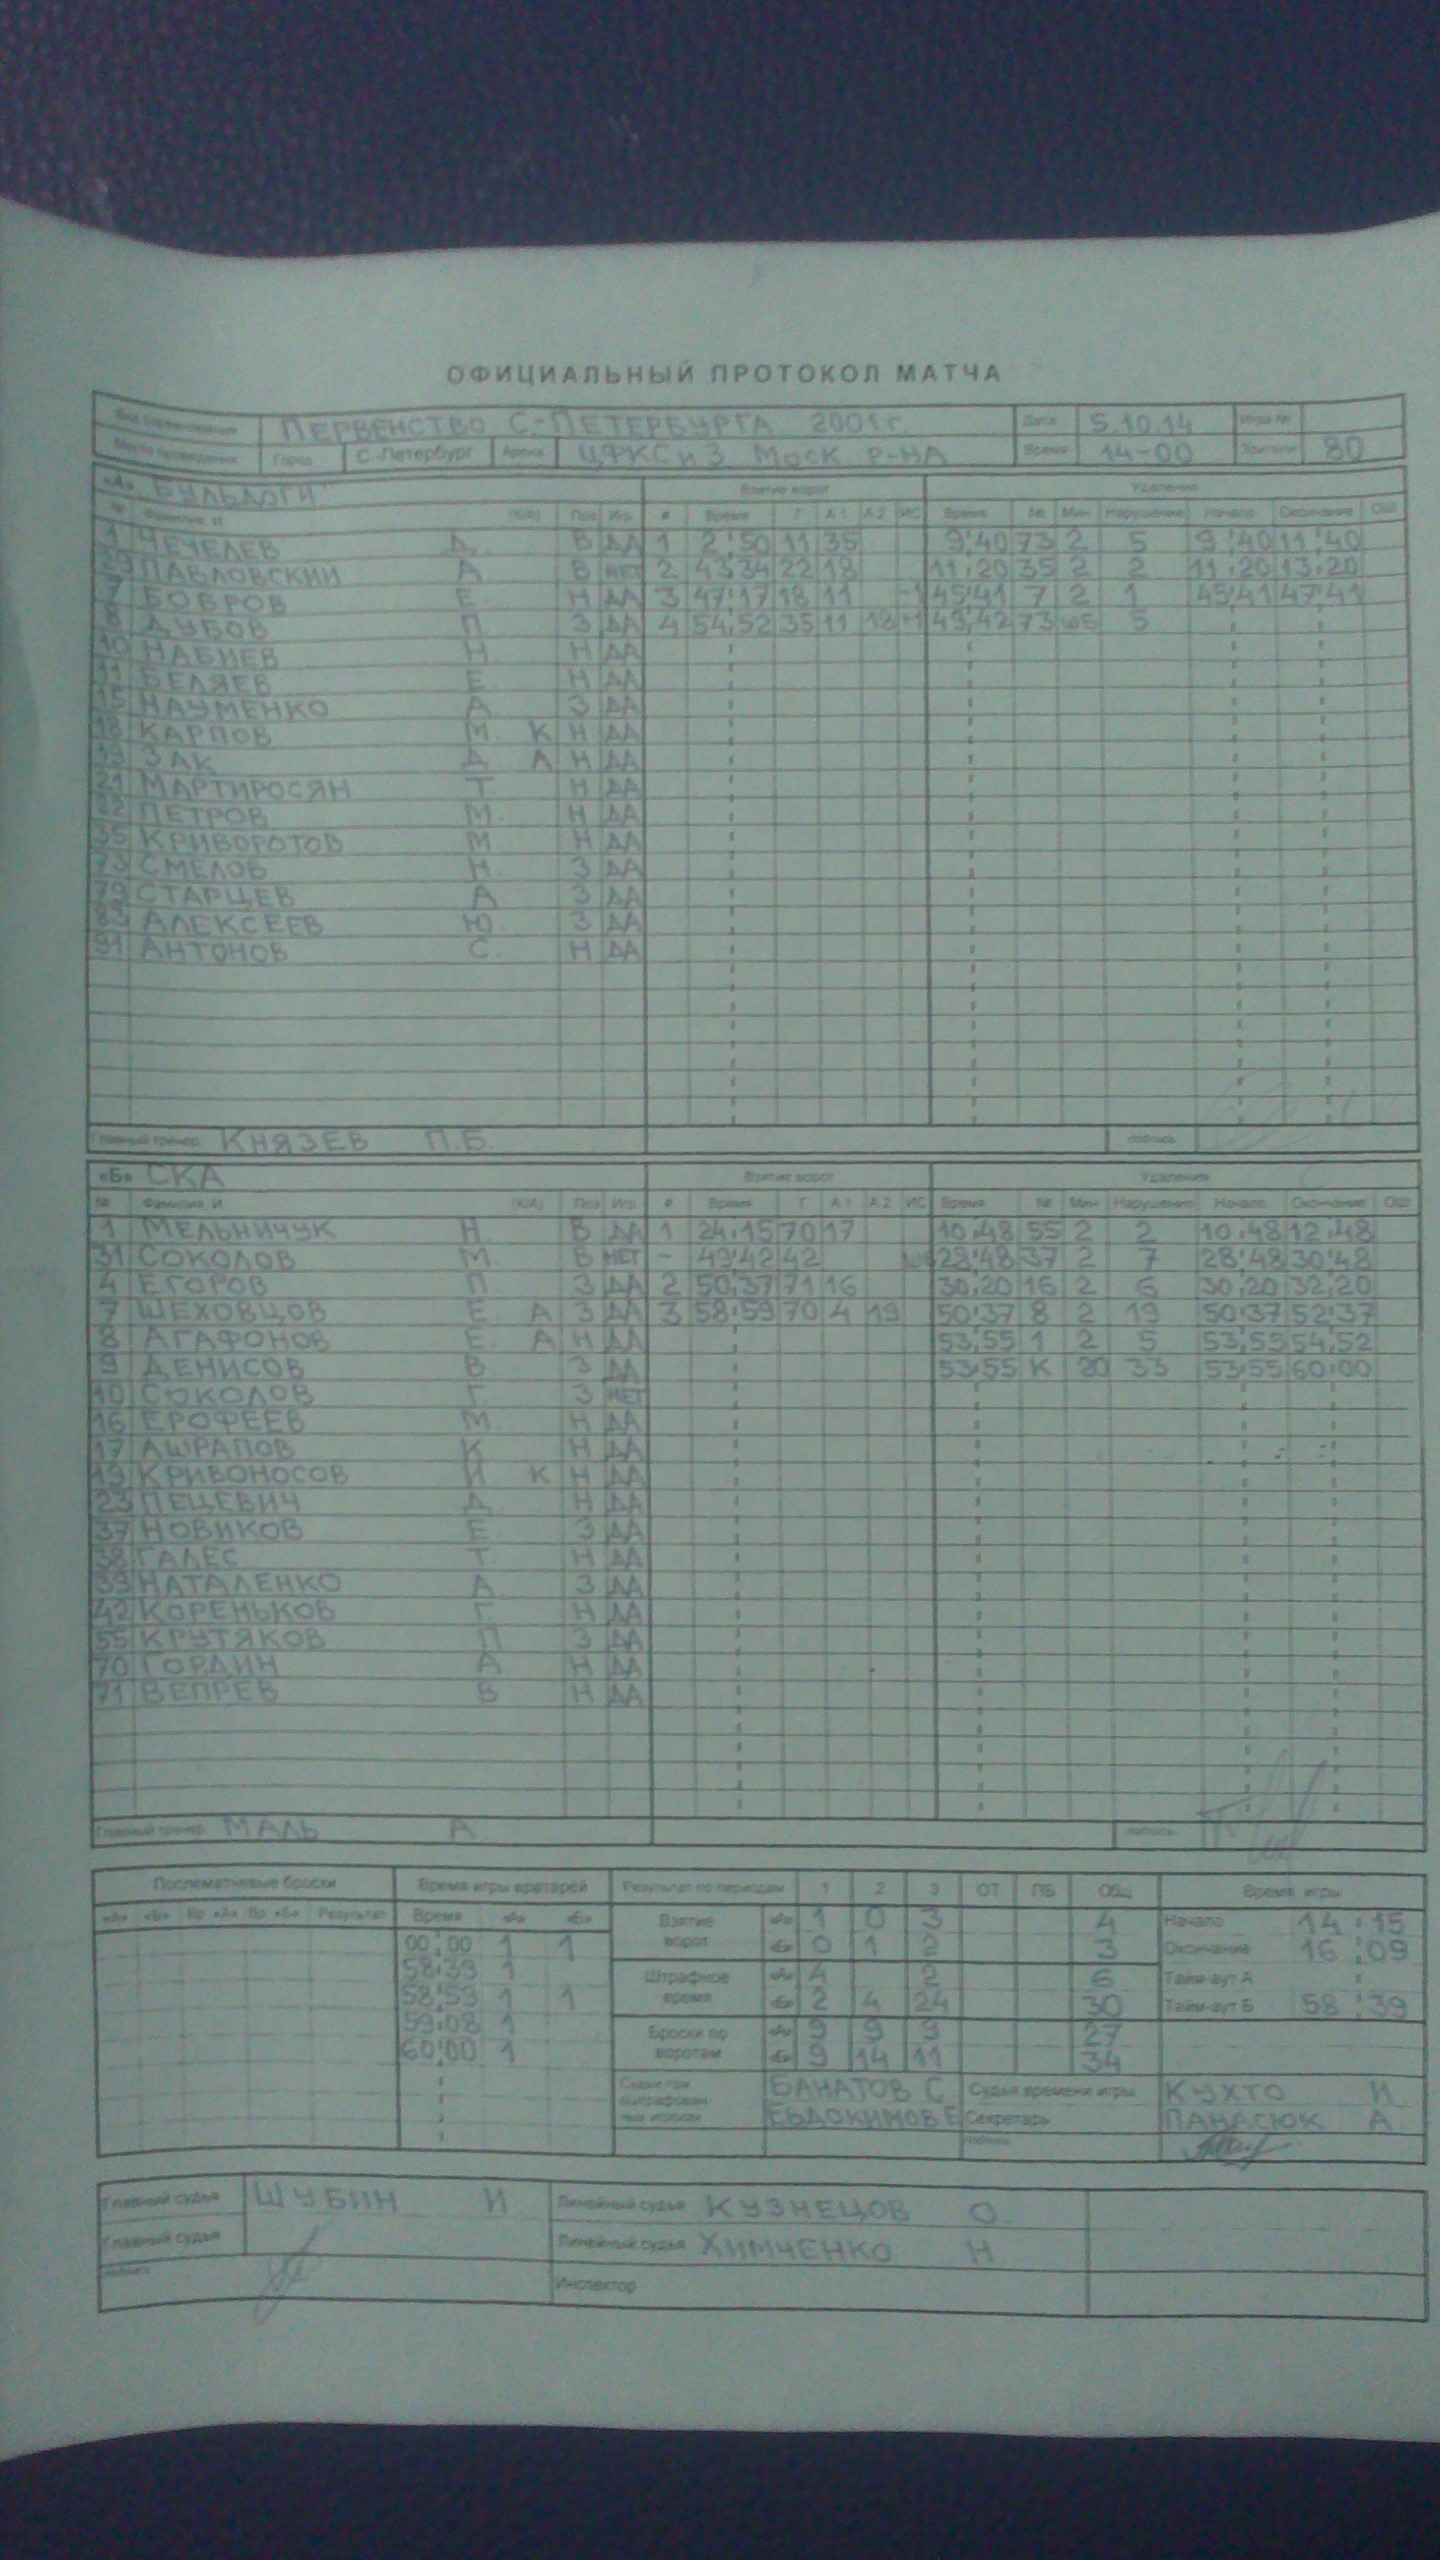 ОФИЦИАЛЬНЫЙ ПРОТОКОЛ МАТЧА
Вид соревнования ПЕРВЕНСТВО С.-ПЕТЕРБУРГА 2001 г. Дата 5.10.14 Игра №
Место проведения Город С.-Петербург Арена ЦФКС и З МОСК. Р-НА Время 14-00 Зрители 80
«А» БУЛЬДОГИ" Взятие ворот Удаления
№ Фамилия, И (К/А) Поз Игр # Время Г А1 А2 ИС Время № Мин Нарушение Начало Окончание ОШ
1 ЧЕЧЕЛЕВ Д. В ДА 1 2:50 11 35 9:40 73 2 5 9:40 11:40
ПАВЛОВСКИЙ А. В НЕТ 2 43 34 22 18 11:20 35 2 2 11:20 13:20
7 БОБРОВ Е. Н ДА 3 47:17 18 11 -1 45:41 7 2 1 45:41 47:41
8 ДУБОВ П З ДА 4 54:52 35 11 18 +1 49:42 73 ШБ 5
10 НАБИЕВ Н Н ДА
11 БЕЛЯЕВ Е. Н ДА
15 НАУМЕНКО А З ДА
18 КАРПОВ М. К Н ДА
19 ЗАК Д А Н ДА
21 МАРТИРОСЯН Т. Н ДА
22 ПЕТРОВ М. Н ДА
35 КРИВОРОТОВ М Н ДА
73 СМЕЛОВ Н З ДА
79 СТАРЦЕВ А З ДА
83 АЛЕКСЕЕВ Ю З ДА
91 АНТОНОВ С. Н ДА
Главный тренер КНЯЗЕВ П.Б. подпись
«Б» СКА Взятие ворот Удаления
№ Фамилия, И (К/А) Поз Игр # Время Г А1 А2 ИС Время № Мин Нарушение Начало Окончание ОШ
1 МЕЛЬНИЧУК Н. В ДА 1 24:15 70 17 10:48 55 2 2 10:48 12:48
31 СОКОЛОВ М. В НЕТ - 49:42 42 ШБ 28:48 37 2 7 28:48 30:48
4 ЕГОРОВ П З ДА 2 50:37 71 16 30:20 16 2 6 30:20 32:20
7 ШЕХОВЦОВ Е А З ДА 3 58:59 70 4 19 50:37 8 2 19 50:37 52:37
8 АГАФОНОВ Е. А Н ДА 53:55 1 2 5 53:55 54:52
9 ДЕНИСОВ В. З ДА 53:55 К 20 33 53:55 60:00
10 СОКОЛОВ Г. З НЕТ
16 ЕРОФЕЕВ М. Н ДА
17 АШРАПОВ К Н ДА
19 КРИВОНОСОВ И К Н ДА
23 ПЕЦЕВИЧ Д. Н ДА
37 НОВИКОВ Е. З ДА
38 ГАЛЕС Т. Н ДА
39 НАТАЛЕНКО А З ДА
42 КОРЕНЬКОВ Г. Н ДА
55 КРУТЯКОВ П З ДА
70 ГОРДИН А Н ДА
71 ВЕПРЕВ В Н ДА
Главный тренер МАЛЬ А подпись
Послематчевые броски Время игры вратарей Результат по периодам 1 2 3 ОТ ПБ Общ Время игры
«А» «Б» Вр «А» Вр «Б» Результат Время «А» «Б» Взятие ворот «А» 1 0 3 4 Начало 14:15
00:00 1 1 «Б» 0 1 2 3 Окончание 16:09
58:39 1 Штрафное время «А» 4 2 6 Тайм-аут А
58:53 1 1 «Б» 2 4 24 30 Тайм-аут Б 58:39
59:08 1 Броски по воротам «А» 9 9 9 27
60:00 1 «Б» 9 14 11 34
Судьи при оштрафованных игроках БАНАТОВ С Судья времени игры КУХТО И
ЕВДОКИМОВ Е Секретарь ПАНАСЮК А
подпись
Главный судья ШУБИН И Линейный судья КУЗНЕЦОВ О
Главный судья Линейный судья ХИМЧЕНКО Н
подписи Инспектор